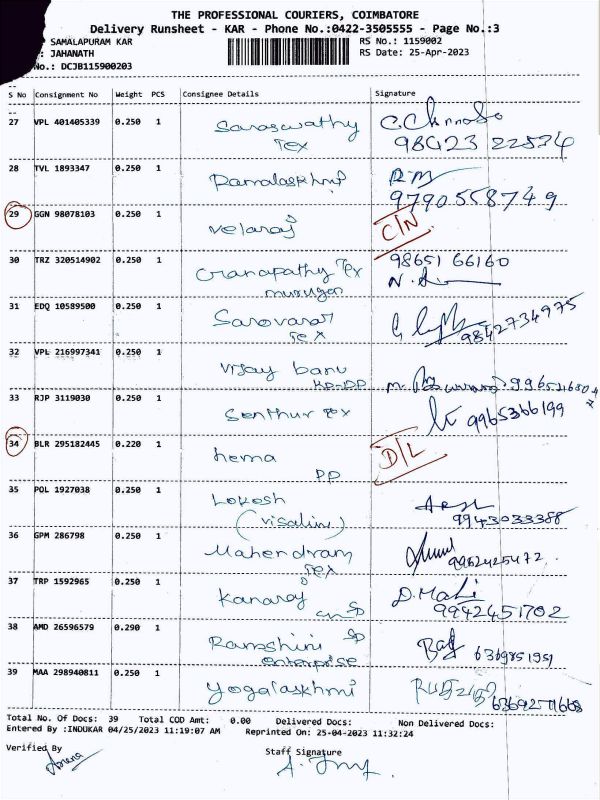 THE PROFESSIONAL COURIERS, COIMBATORE
Delivery Runsheet - KAR - Phone No.:0422-3505555 - Page No.:3
SAMALAPURAM KAR RS No.: 1159002
: JAHANATH RS Date: 25-Apr-2023
No.: DCJB115900203
S No Consignment No Weight PCS Consignee Details Signature
27 VPL 401405339 0.250 1 Saraswathy
Tex
28 TVL 1893347 0.250 1 Ramalaskhmi RM
9790558749
29 GGN 98078103 0.250 1 Velaraj C/N
30 TRZ 320514902 0.250 1 Ganapathy Tex 98651 66160
murugan
31 EDQ 10589500 0.250 1 Sarovarar 9842734975
Tex
32 VPL 216997341 0.250 1 Vijay banu
33 RJP 3119030 0.250 1 Senthur Tex 9965366199
34 BLR 295182445 0.220 1 hema D/L
PP
35 POL 1927038 0.250 1 Lokesh
(Visalini) 9943033388
36 GPM 286798 0.250 1 Mahendram
Tex 9952425472
37 TRP 1592965 0.250 1 Kanaraj D. Mahi
9942451702
38 AMD 26596579 0.290 1 Ramshini
enterprise 6369851951
39 MAA 298940811 0.250 1 Yogalaskhmi
Total No. Of Docs: 39 Total COD Amt: 0.00 Delivered Docs: Non Delivered Docs:
Entered By :INDUKAR 04/25/2023 11:19:07 AM Reprinted On: 25-04-2023 11:32:24
Verified By Staff Signature